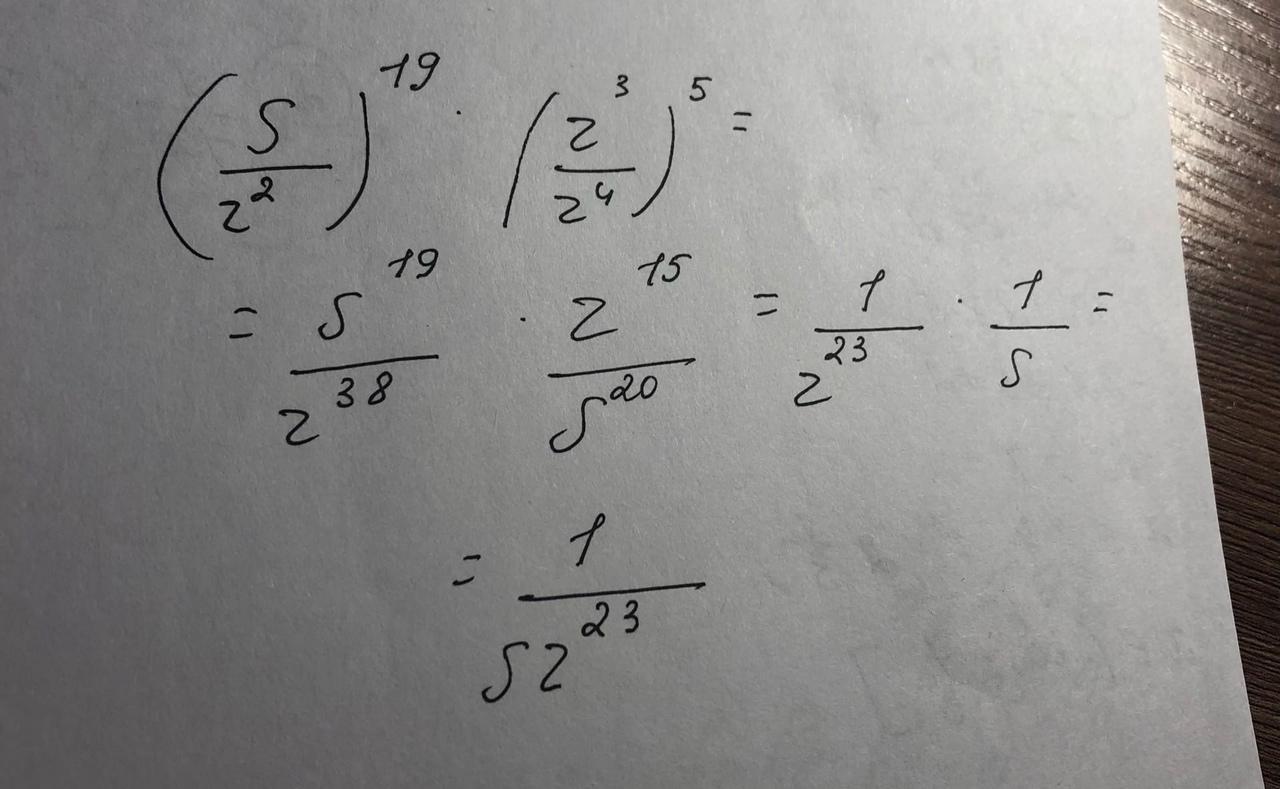 (S/z^2)^19 · (z^3/z^4)^5 =
= S^19/z^38 · z^15/S^20 = 1/z^23 · 1/S =
= 1/Sz^23